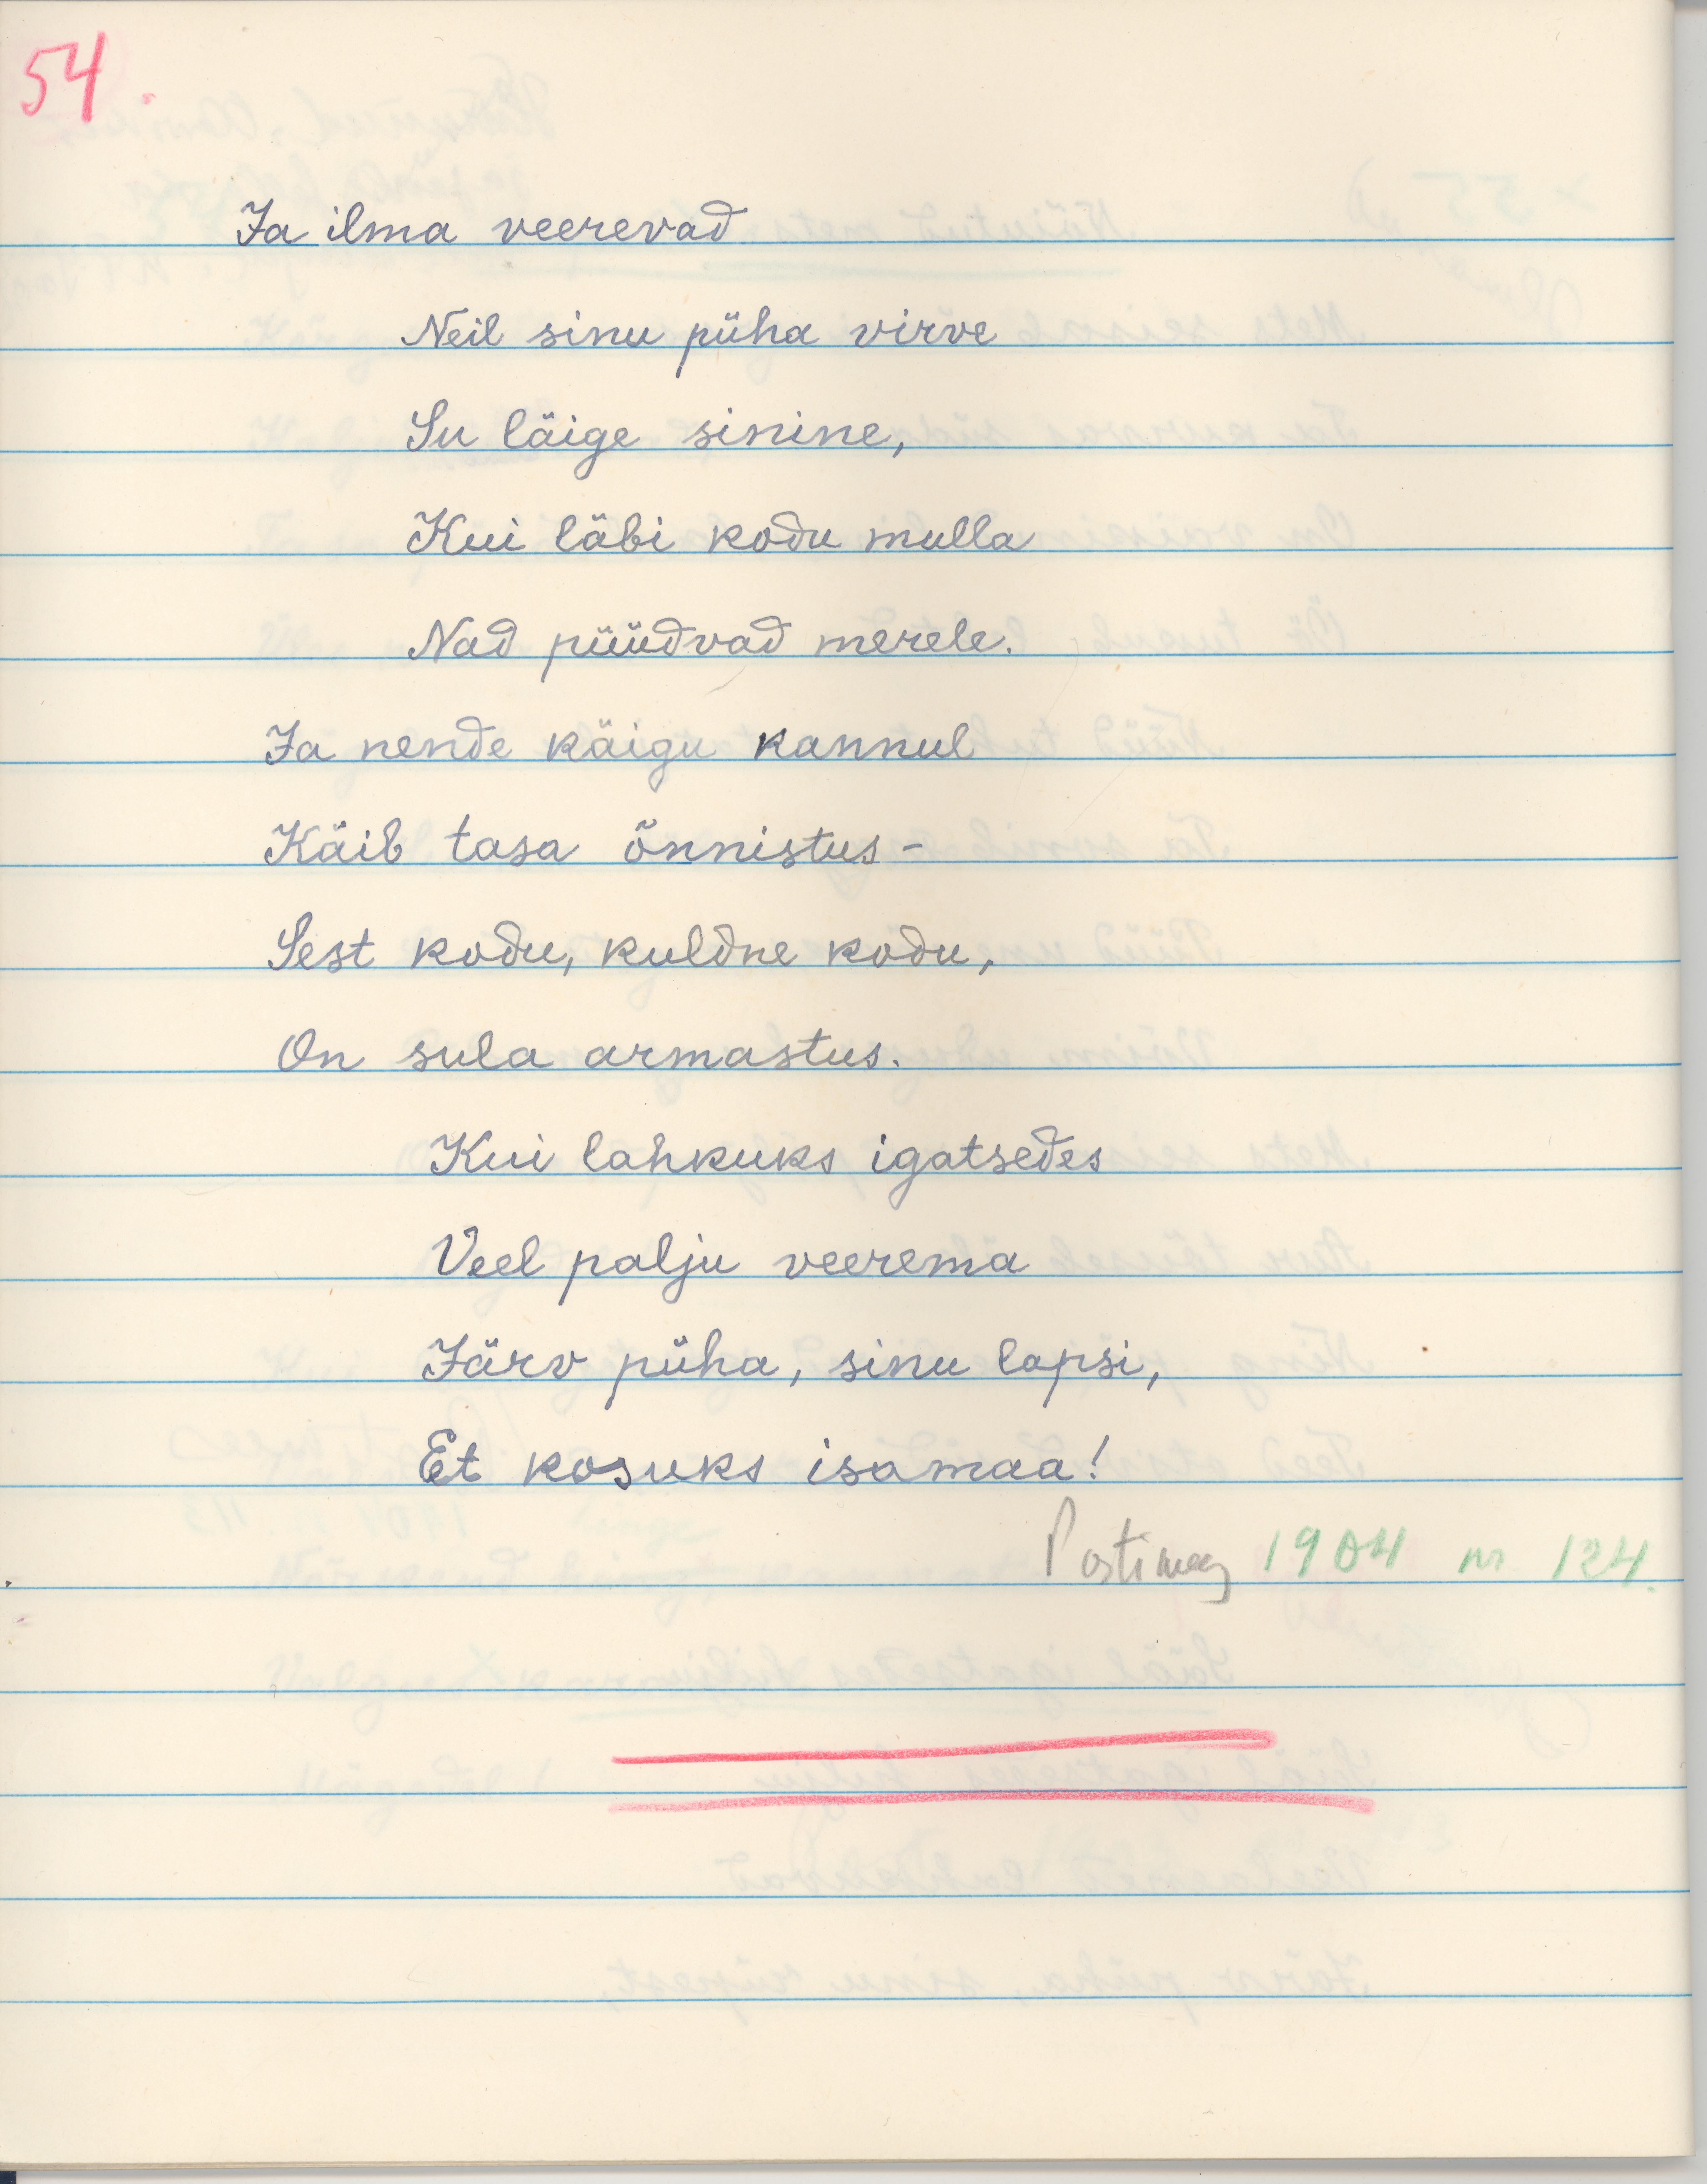 54.
Ja ilma veerevad
Neil sinu püha virve
Su läige sinine,
Kui läbi kodu mulla
Nad püüdvad merele.
Ja nende käigu kannul
Käib tasa õnnistus -
Sest kodu, kuldne kodu,
On sula armastus.
Kui lahkuks igatsedes
Veel palju veerema
Järv püha, sinu lapsi,
Et kosuks isamaa!
Postimees 1904 nr 124.